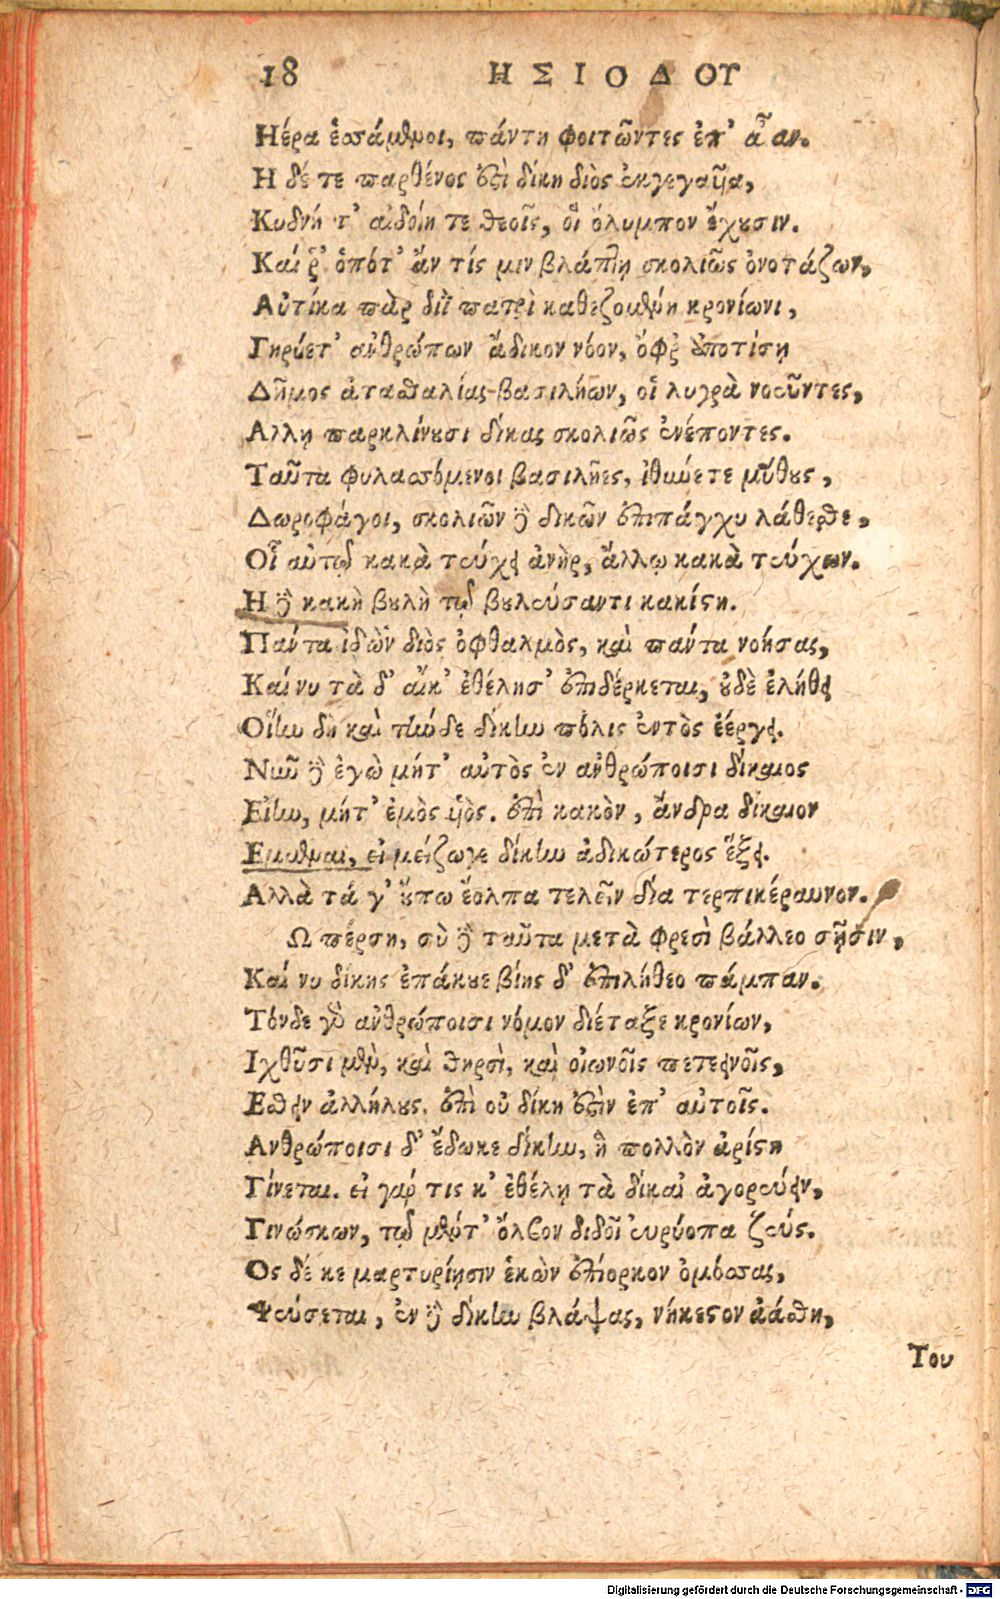 18 ΗΣΙΟΔΟΥ
Ηέρα ἑσσάμενοι, πάντη φοιτῶντες ἐπ' αἶαν.
Η δέ τε παρθένος ἐστὶ δίκη διὸς ἐκγεγαυῖα,
Κυδνή τ' αἰδοίη τε θεοῖς, οἳ ὄλυμπον ἔχουσιν.
Καί ῥ' ὁπότ' ἄν τίς μιν βλάπτῃ σκολιῶς ὀνοτάζων,
Αὐτίκα πὰρ διῒ πατρὶ καθεζομένη κρονίωνι,
Γηρύετ' ἀνθρώπων ἄδικον νόον, ὄφρ' ἀποτίσῃ
Δῆμος ἀτασθαλίας βασιλήων, οἳ λυγρὰ νοεῦντες,
Αλλῃ παρκλίνουσι δίκας σκολιῶς ἐνέποντες.
Ταῦτα φυλασσόμενοι βασιλῆες, ἰθύνετε μύθους,
Δωροφάγοι, σκολιῶν δὲ δικῶν ἐπιπάγχυ λάθεσθε,
Οἷ αὐτῷ κακὰ τεύχει ἀνὴρ, ἄλλῳ κακὰ τεύχων.
Η δὲ κακὴ βουλὴ τῷ βουλεύσαντι κακίστη.
Πάντα ἰδὼν διὸς ὀφθαλμὸς, καὶ πάντα νοήσας,
Καί νυ τὰ δ' αἴκ' ἐθέλησ' ἐπιδέρκεται, οὐδὲ ἑλήθει
Οἵην δὴ καὶ τήνδε δίκην πόλις ἐντὸς ἐέργει.
Νῦν δὲ ἐγὼ μήτ' αὐτὸς ἐν ἀνθρώποισι δίκαιος
Εἴην, μήτ' ἐμὸς υἱὸς. ἐπεὶ κακὸν, ἄνδρα δίκαιον
Εμμεναι, εἰ μείζωγε δίκην ἀδικώτερος ἕξει.
Αλλὰ τά γ' οὔπω ἔολπα τελεῖν δία τερπικέραυνον.
Ω πέρση, σὺ δὲ ταῦτα μετὰ φρεσὶ βάλλεο σῇσιν,
Καί νυ δίκης ἐπάκουε βίης δ' ἐπιλήθεο πάμπαν.
Τόνδε γὰρ ἀνθρώποισι νόμον διέταξε κρονίων,
Ιχθύσι μὲν, καὶ θηρσὶ, καὶ οἰωνοῖς πετεεινοῖς,
Εσθειν ἀλλήλους. ἐπεὶ οὐ δίκη ἐστὶν ἐπ' αὐτοῖς.
Ανθρώποισι δ' ἔδωκε δίκην, ἣ πολλὸν ἀρίστη
Γίνεται. εἰ γάρ τις κ' ἐθέλῃ τὰ δίκαι' ἀγορεύειν,
Γινώσκων, τῷ μέντ' ὄλβον διδοῖ εὐρύοπα ζεύς.
Ος δέ κε μαρτυρίῃσιν ἑκὼν ἐπίορκον ὀμόσσας,
Ψεύσεται, ἐν δὲ δίκην βλάψας, νήκεστον ἀάσθη,
Του
Digitalisierung gefördert durch die Deutsche Forschungsgemeinschaft - DFG